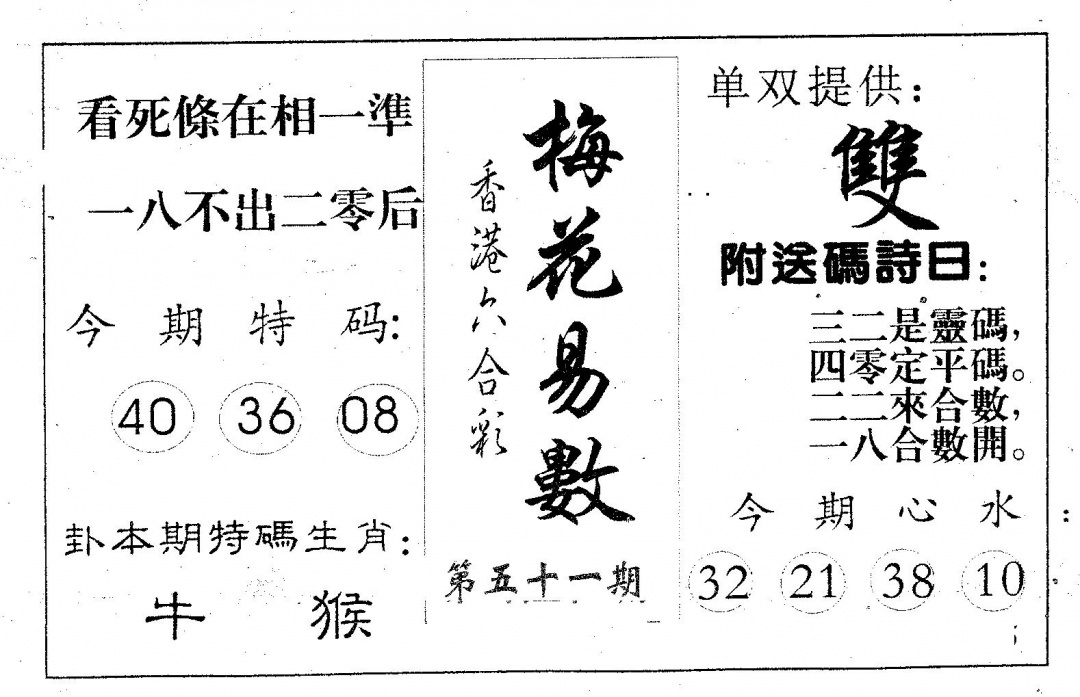 看死條在相一準
一八不出二零后
今期特码:
40 36 08
卦本期特碼生肖:
牛 猴
梅花易數
香港六合彩
第五十一期
单双提供:
雙
附送碼詩曰:
三二是靈碼,
四零定平碼。
二二來合數,
一八合數開。
今期心水:
32 21 38 10